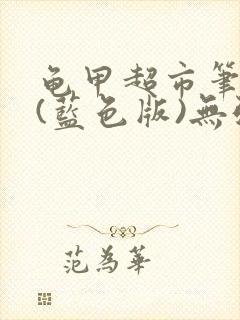 龟甲超市筆
(藍色版)無
范為華